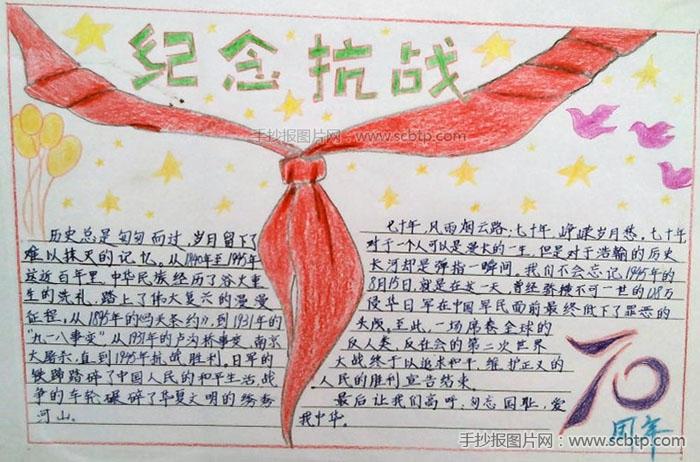 纪念抗战
手抄报图片网:www.scbtp.com
历史总是匆匆而过,岁月留下了
难以抹灭的记忆。从1840年至1945年
这近百年里,中华民族经历了
的洗礼,踏上了伟大复兴的漫漫
征程,从1895年的《马关条约》,到1931年的
“九一八事变”从1937年的卢沟桥事变,南京
大屠杀,直到1945年抗战胜利。日军的
铁蹄踏碎了中国人民的和平生活,战
争的车轮碾碎了华夏文明的锦秀
河山。
七十年,风雨烟云路,七十年,峥嵘岁月愁。七十年
对于一个人可以是漫长的一生,但是对于浩翰的历史
长河却是弹指一瞬间。我们不会忘记,1945年的
8月15日,就是在这一天,曾经骄横不可一世的128万
侵华日军在中国军民面前最终低下了罪恶的
头颅。至此,一场席卷全球的
反人类、反社会的第二次世界
大战终于以追求和平、维护正义的
人民的胜利宣告结束。
最后让我们高呼,勿忘国耻,爱
我中华。
70
周年
手抄报图片网:www.scbtp.com